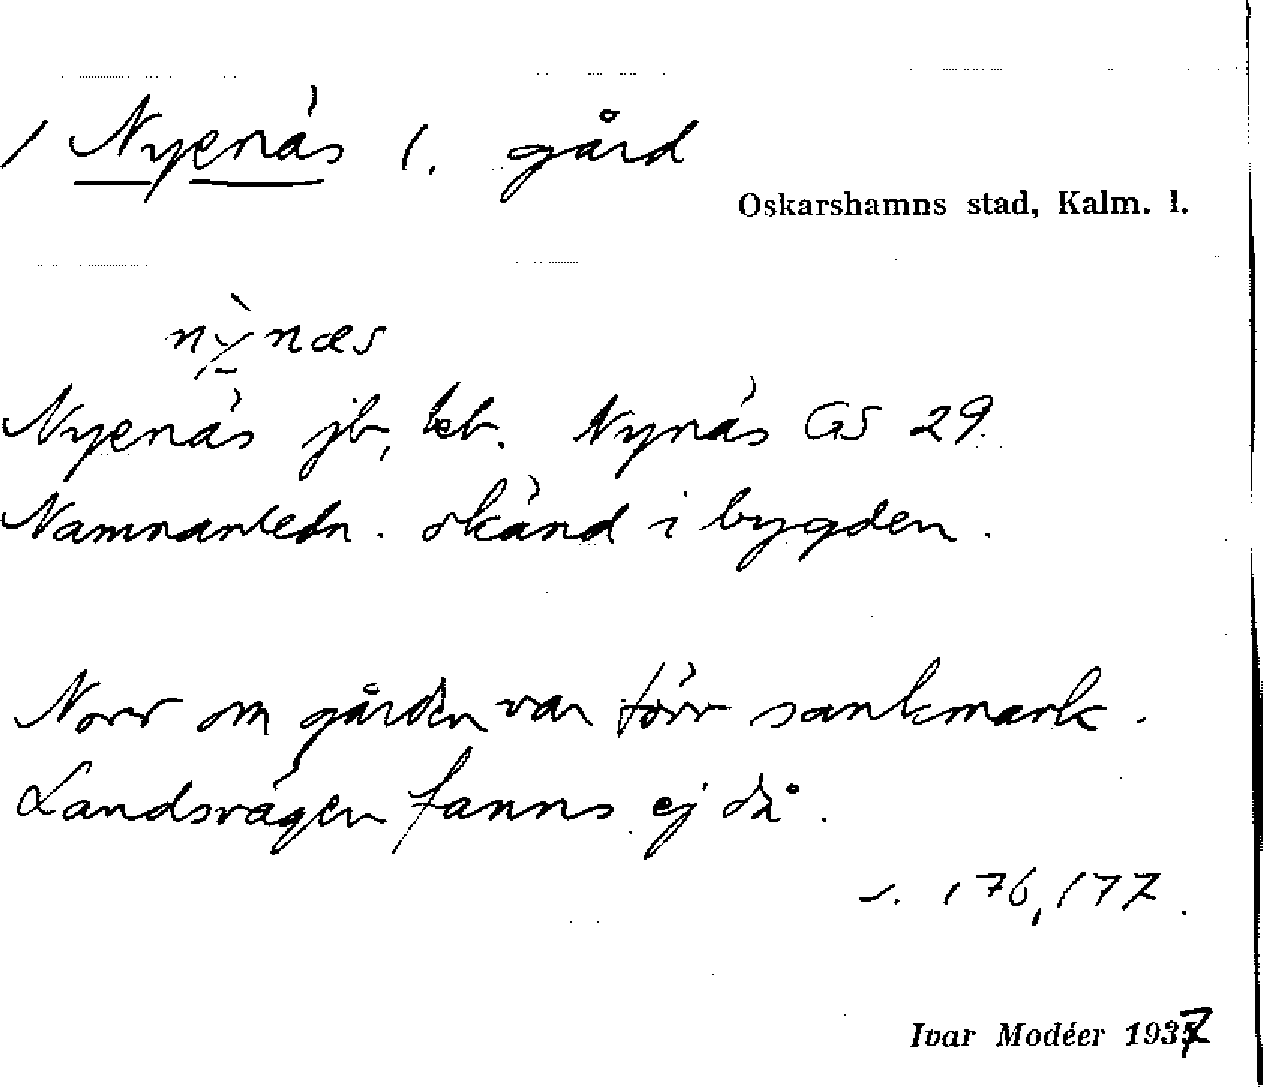 / Nyenäs 1. gård
Oskarshamns stad, Kalm. l.
nỳnæs
Nyenäs jb, leb. Nynäs GS 29.
Namnanledn. okänd i bygden.
Norr om gården var förr sankmark.
Landsvägen fanns ej då.
s. 176, 177.
Ivar Modéer 1937